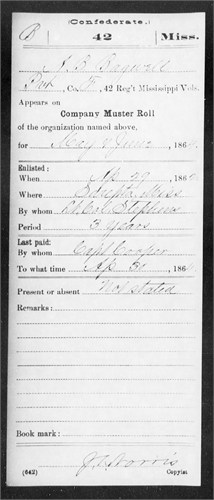 (Confederate.)
B 42 Miss.
A. B. Bagwell
Pvt, Co. F, 42 Reg't Mississippi Vols.
Appears on
Company Muster Roll
of the organization named above,
for May & June, 186
Enlisted:
When Ap 29, 186
Where Miss
By whom Lt. Col. Stephens
Period 3 Years
Last paid:
By whom Capt Cooper
To what time Ap 30, 186
Present or absent Not stated
Remarks:
Book mark:
(642) Copyist.